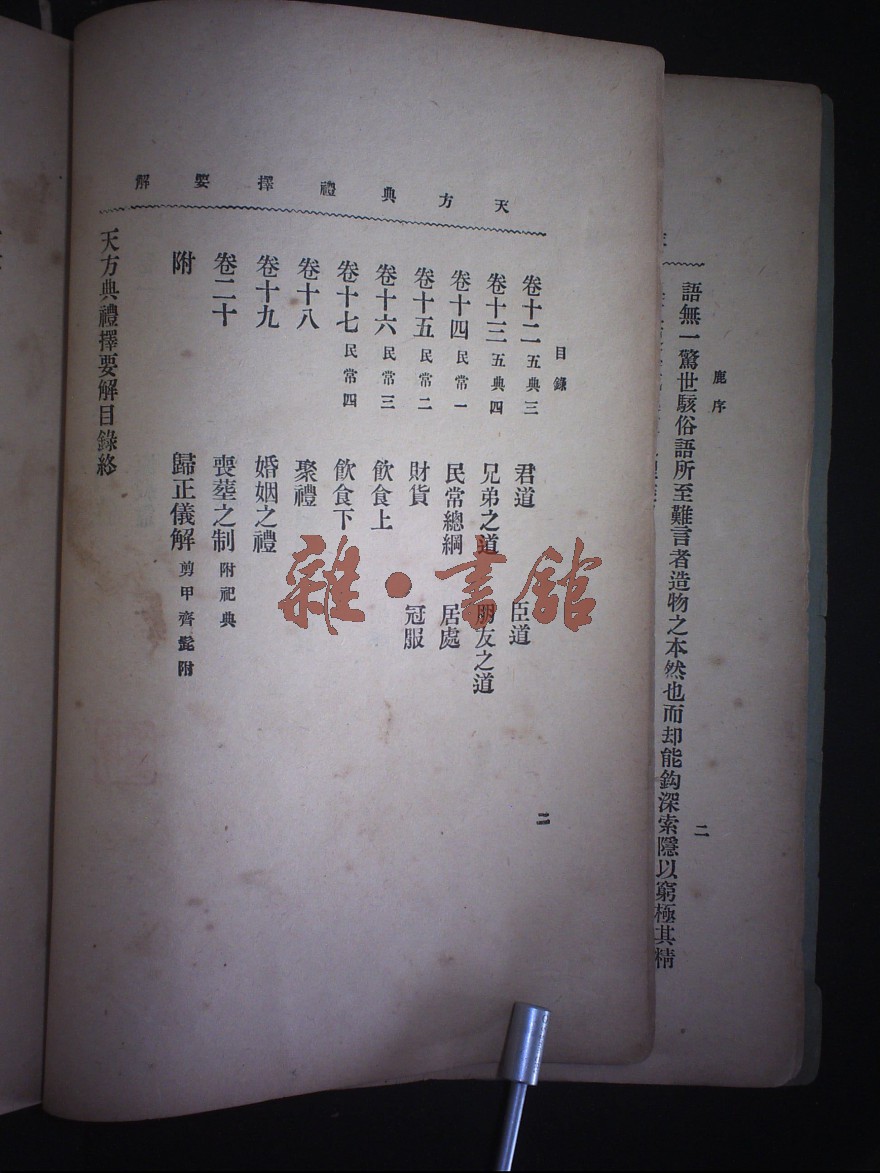 天方典禮擇要解
目錄
卷十二 五典三 君道 臣道
卷十三 五典四 兄弟之道 朋友之道
卷十四 民常一 民常總綱 居處
卷十五 民常二 財貨 冠服
卷十六 民常三 飲食上
卷十七 民常四 飲食下
卷十八 聚禮
卷十九 婚姻之禮
卷二十 喪塟之制 附祀典
附 歸正儀解 剪甲齊髭附
天方典禮擇要解目錄終
二
鹿序
語無一驚世駭俗語所至難言者造物之本然也而却能鈎深索隱以窮極其精
二
雜·書館